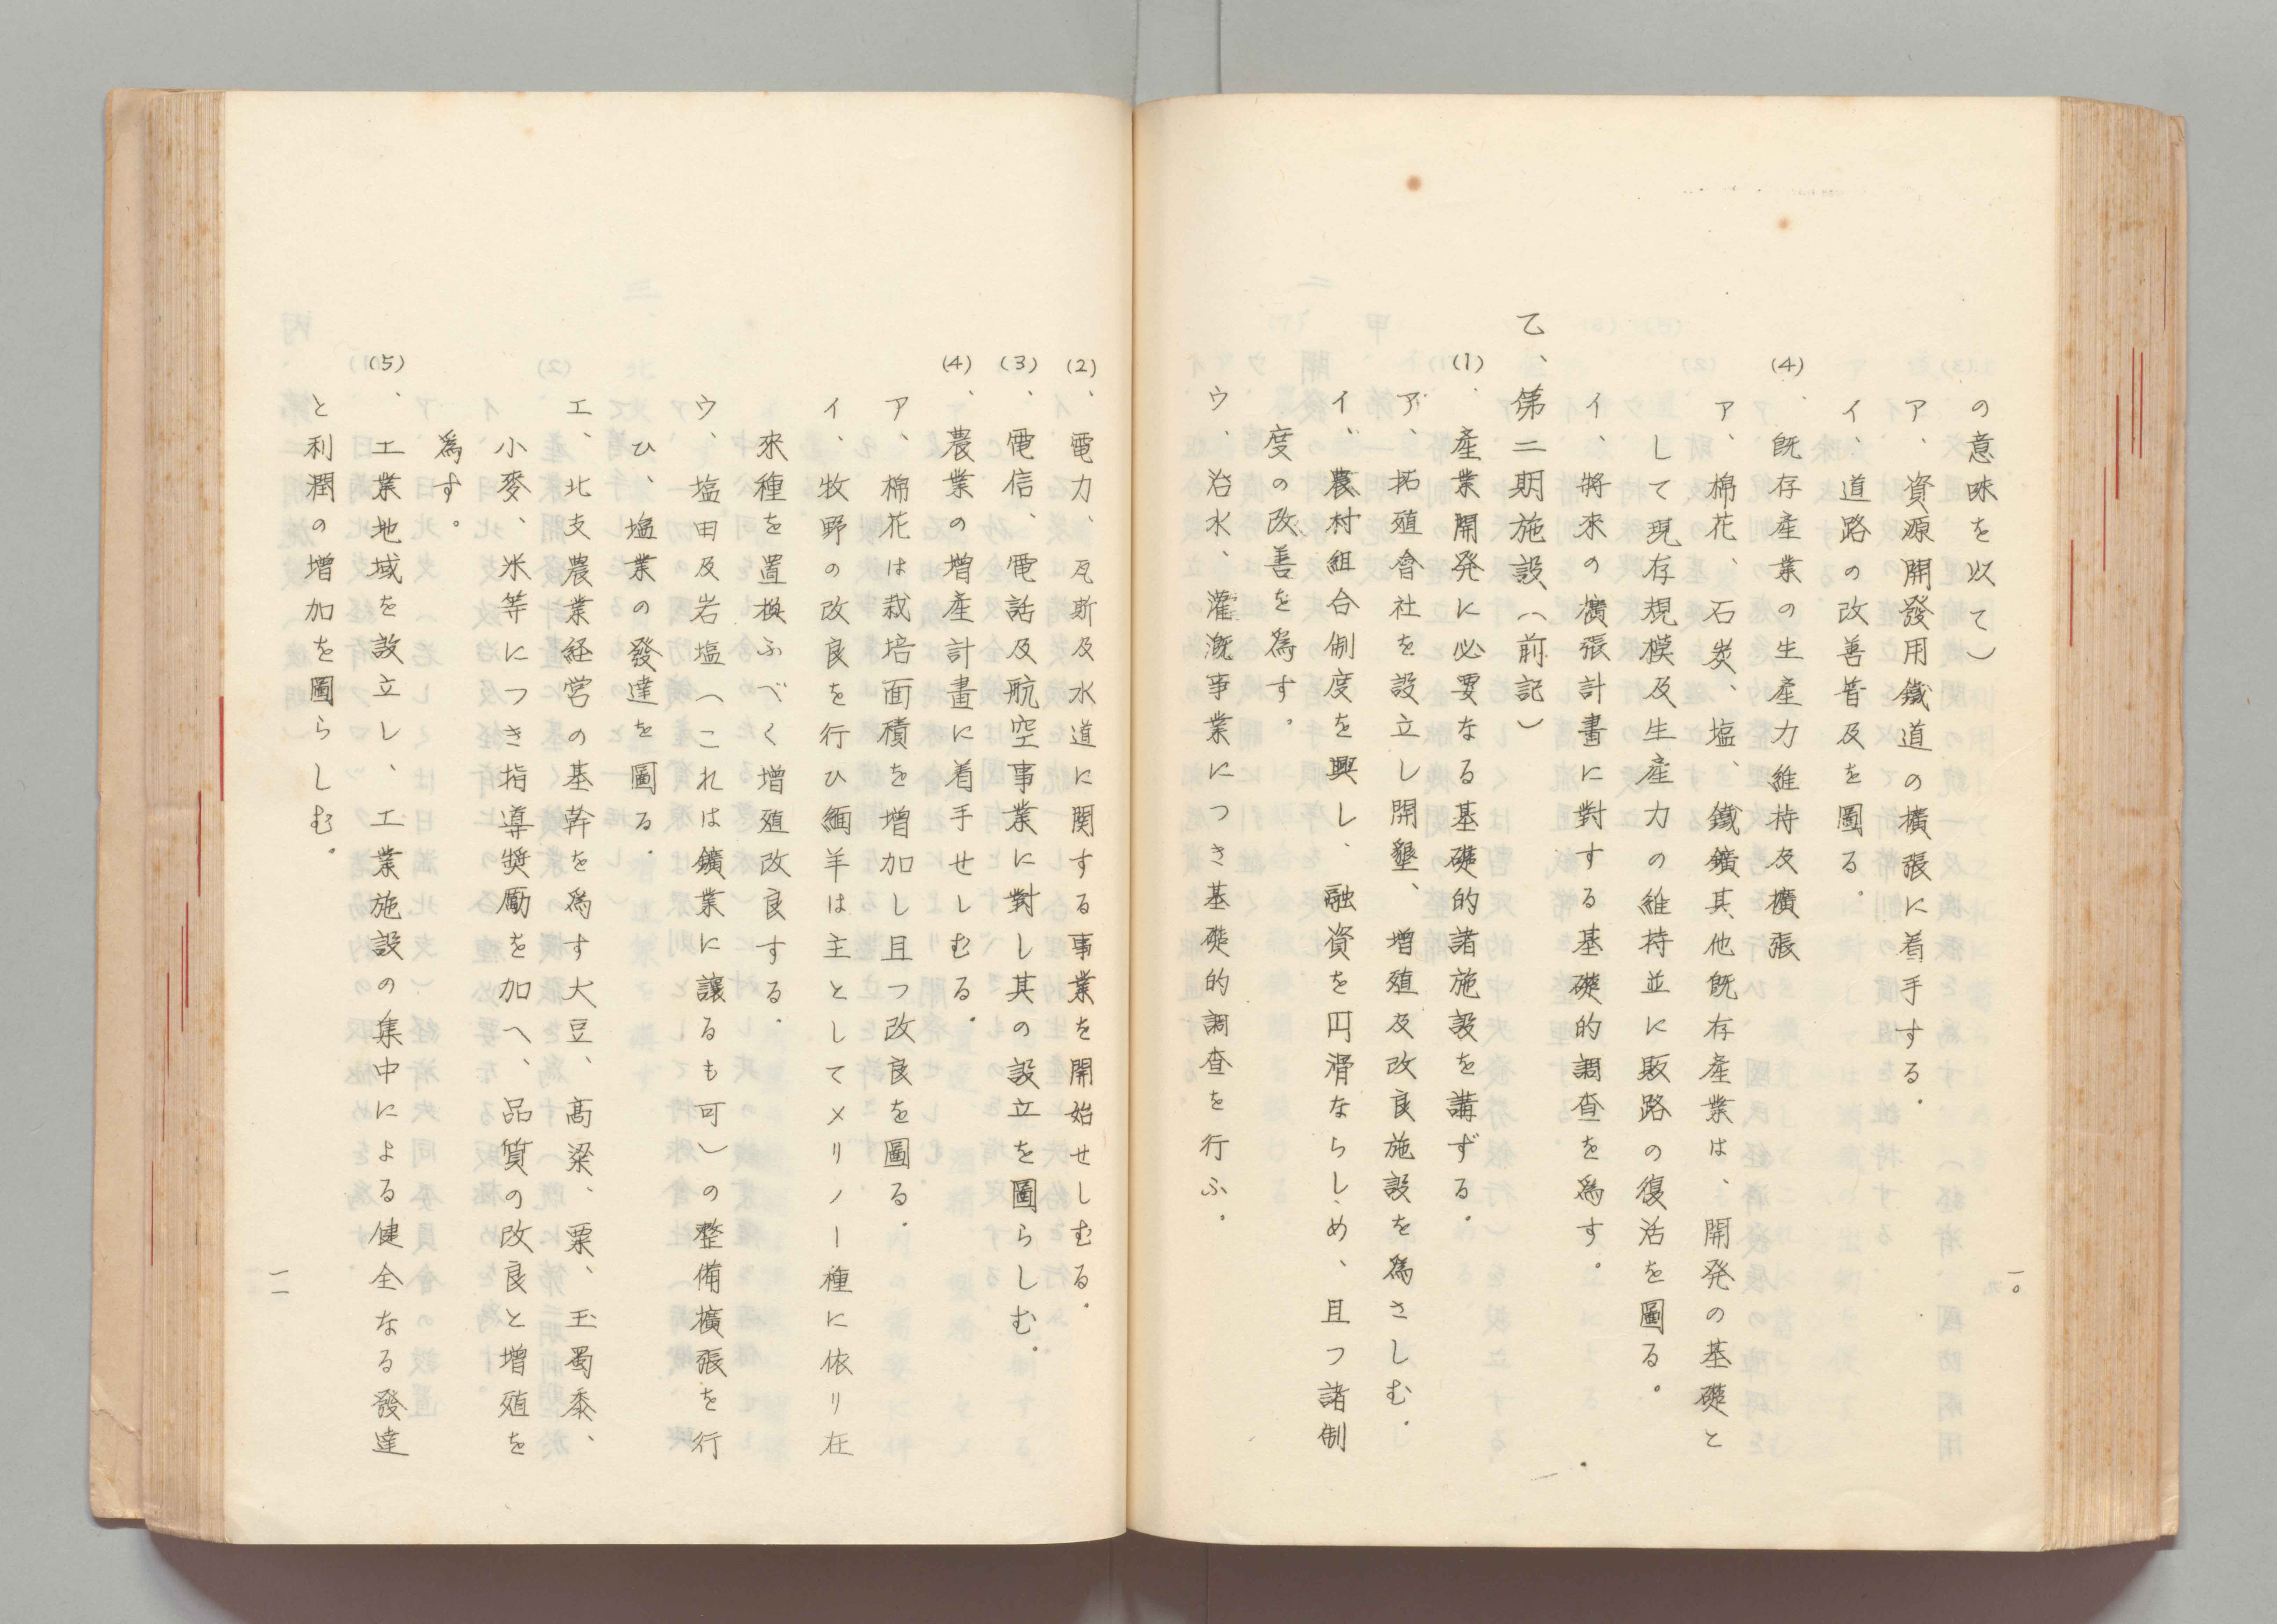 の意味を以て）
ア、資源開發用鐵道の擴張に着手する．
イ、道路の改善普及を圖る．
(4)、既存產業の生產力維持及擴張
ア、棉花、石炭、塩、鐵鑛其他既存產業は、開発の基礎と
して現存規模及生產力の維持並に販路の復活を圖る。
イ、將来の擴張計畫に對する基礎的調査を爲す。
乙、第二期施設、（前記）
(1)、產業開発に必要なる基礎的諸施設を講ずる．
ア、拓殖會社を設立し開墾、增殖及改良施設を爲さしむ．
イ、農村組合制度を興し、融資を円滑ならしめ、且つ諸制
度の改善を爲す。
ウ、治水、灌漑事業につき基礎的調査を行ふ．
一〇
(2)、電力、瓦斯及水道に関する事業を開始せしむる．
(3)、電信、電話及航空事業に對し其の設立を圖らしむ。
(4)、農業の增產計畫に着手せしむる．
ア、棉花は栽培面積を增加し且つ改良を圖る．
イ、牧野の改良を行ひ緬羊は主としてメリノー種に依リ在
來種を置換ふべく增殖改良する．
ウ、塩田及岩塩（これは鑛業に讓るも可）の整備擴張を行
ひ、塩業の發達を圖る．
エ、北支農業経営の基幹を爲す大豆、高粱、粟、玉蜀黍、
小麥、米等につき指導奬勵を加へ、品質の改良と増殖を
爲す。
(5)、工業地域を設立し、工業施設の集中による健全なる發達
と利潤の増加を圖らしむ。
一一